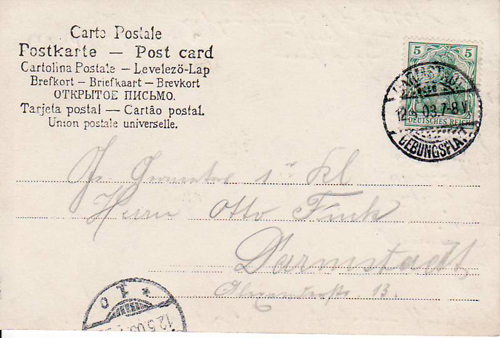 Carte Postale
Postkarte — Post card
Cartolina Postale – Levelező-Lap
Brefkort – Briefkaart – Brevkort
ОТКРЫТОЕ ПИСЬМО.
Tarjeta postal — Cartão postal.
Union postale universelle.
5 5
DEUTSCHES REICH
DARMSTADT
12. 03. 7-8 V.
ÜBUNGSPLATZ
Herrn Otto Finck
Darmstadt
13.
12 5 03